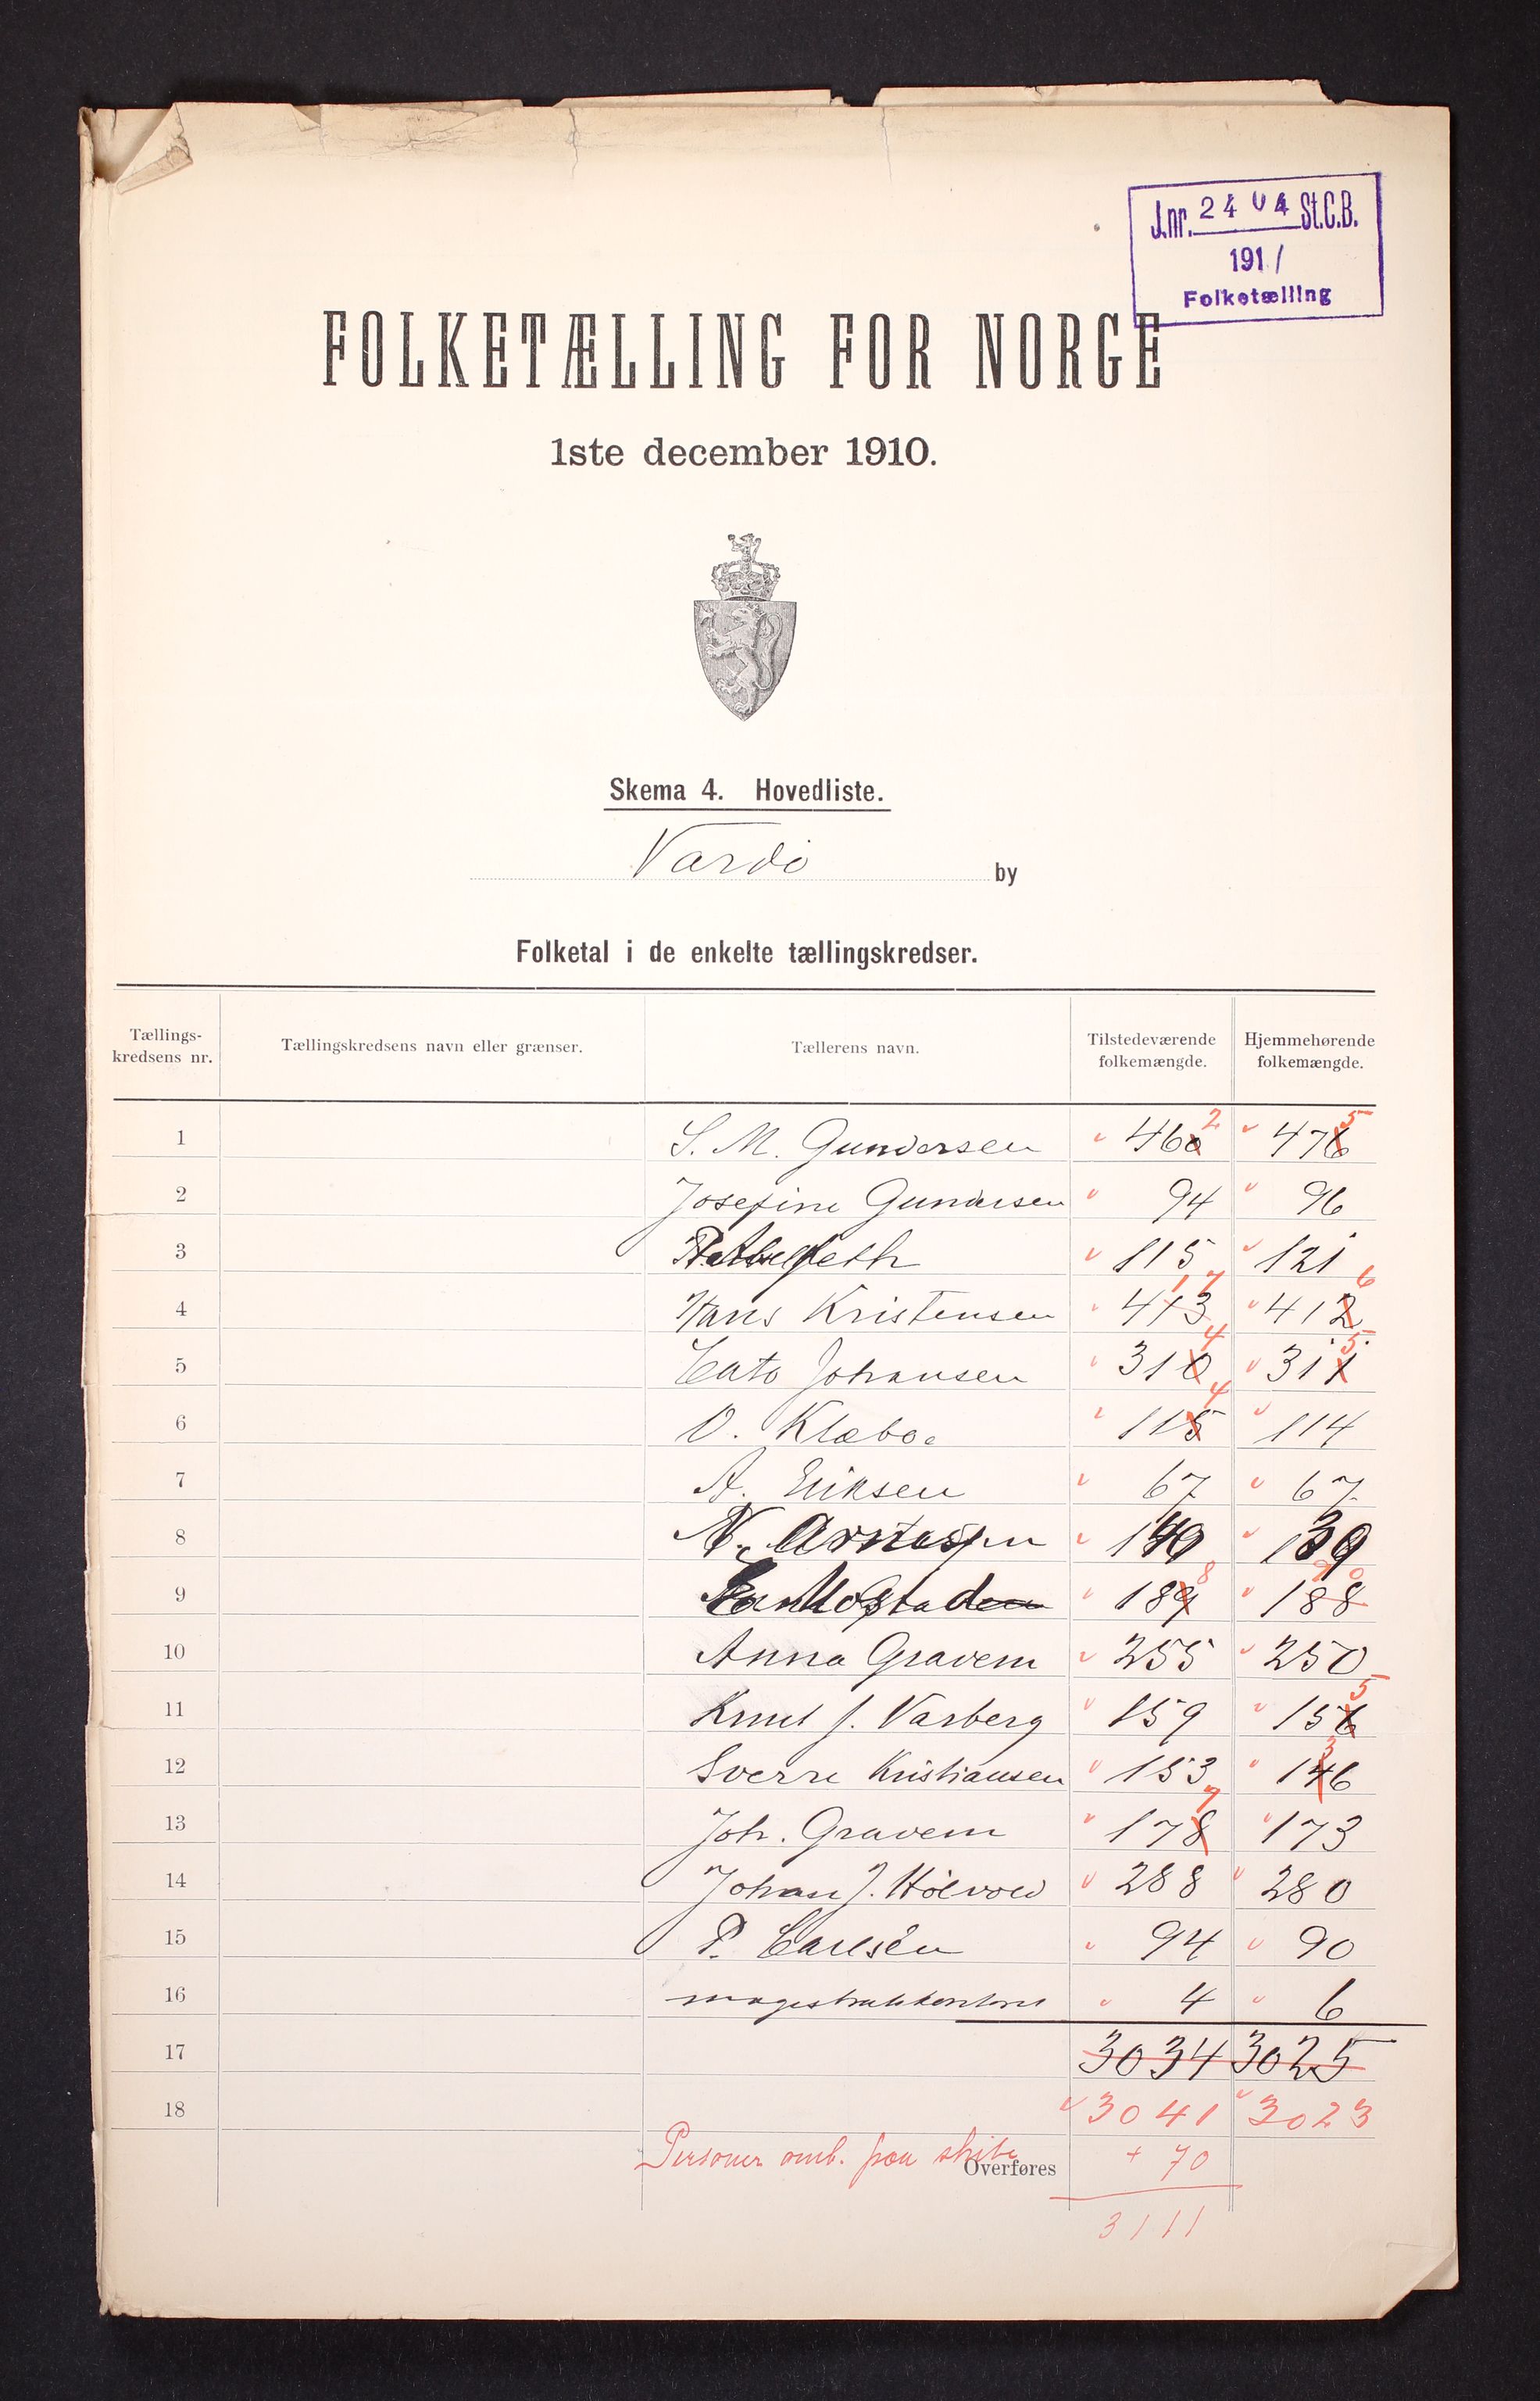 J.nr. 2404 St.C.B.
1911
Folketælling
FOLKETÆLLING FOR NORGE
1ste december 1910.
Skema 4. Hovedliste.
Vardö by
Folketal i de enkelte tællingskredser.
Tællings-kredsens nr. Tællingskredsens navn eller grænser. Tællerens navn. Tilstedeværende folkemængde. Hjemmehørende folkemængde.
1 S. M. Gundersen 460 2 476 5
2 Josefine Gundersen 94 96
3 115 121
4 Hans Kristensen 413 17 412 6
5 Cato Johansen 310 4 311 5
6 O. Klæboe 115 4 114
7 A. Eriksen 67 67
8 N. 140 139
9 189 8 188 90
10 Anna Gravem 255 250
11 Knut J. Varberg 159 156 5
12 Sverre Kristiansen 153 146 3
13 Joh. Gravem 178 7 173
14 Johan J. Hölvold 288 280
15 P. Carlsen 94 90
16 magistratskontoret 4 6
17 3034 3025
18 3041 3023
Personer omb. paa skibe Overføres + 70
3111